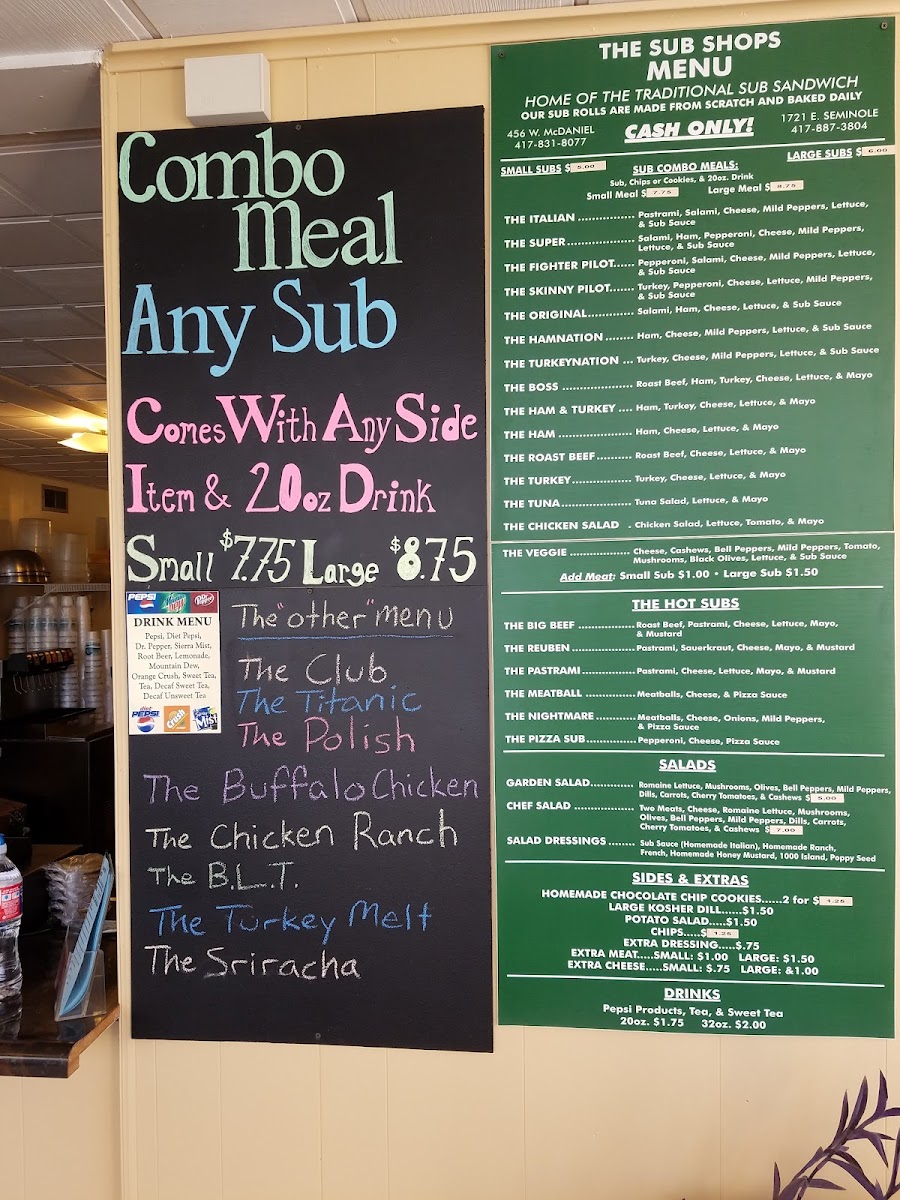 Combo
Meal
Any Sub
Comes With Any Side
Item & 20oz Drink
Small $7.75 Large $8.75
PEPSI Mtn Dew Dr Pepper
DRINK MENU
Pepsi, Diet Pepsi,
Dr. Pepper, Sierra Mist,
Root Beer, Lemonade,
Mountain Dew,
Orange Crush, Sweet Tea,
Tea, Decaf Sweet Tea,
Decaf Unsweet Tea
diet PEPSI Crush Mist
The "other" menu
The Club
The Titanic
The Polish
The Buffalo Chicken
The Chicken Ranch
The B.L.T.
The Turkey Melt
The Sriracha
THE SUB SHOPS
MENU
HOME OF THE TRADITIONAL SUB SANDWICH
OUR SUB ROLLS ARE MADE FROM SCRATCH AND BAKED DAILY
456 W. McDANIEL
417-831-8077
CASH ONLY!
1721 E. SEMINOLE
417-887-3804
SMALL SUBS $5.00
SUB COMBO MEALS:
LARGE SUBS $6.00
Sub, Chips or Cookies, & 20oz. Drink
Small Meal $7.75 Large Meal $8.75
THE ITALIAN ................ Pastrami, Salami, Cheese, Mild Peppers, Lettuce,
& Sub Sauce
THE SUPER................... Salami, Ham, Pepperoni, Cheese, Mild Peppers,
Lettuce, & Sub Sauce
THE FIGHTER PILOT...... Pepperoni, Salami, Cheese, Mild Peppers, Lettuce,
& Sub Sauce
THE SKINNY PILOT....... Turkey, Pepperoni, Cheese, Lettuce, Mild Peppers,
& Sub Sauce
THE ORIGINAL............. Salami, Ham, Cheese, Lettuce, & Sub Sauce
THE HAMNATION ........ Ham, Cheese, Mild Peppers, Lettuce, & Sub Sauce
THE TURKEYNATION ... Turkey, Cheese, Mild Peppers, Lettuce, & Sub Sauce
THE BOSS .................... Roast Beef, Ham, Turkey, Cheese, Lettuce, & Mayo
THE HAM & TURKEY .... Ham, Turkey, Cheese, Lettuce, & Mayo
THE HAM ..................... Ham, Cheese, Lettuce, & Mayo
THE ROAST BEEF.......... Roast Beef, Cheese, Lettuce, & Mayo
THE TURKEY................. Turkey, Cheese, Lettuce, & Mayo
THE TUNA.................... Tuna Salad, Lettuce, & Mayo
THE CHICKEN SALAD . Chicken Salad, Lettuce, Tomato, & Mayo
THE VEGGIE ................. Cheese, Cashews, Bell Peppers, Mild Peppers, Tomato,
Mushrooms, Black Olives, Lettuce, & Sub Sauce
Add Meat: Small Sub $1.00 • Large Sub $1.50
THE HOT SUBS
THE BIG BEEF ................ Roast Beef, Pastrami, Cheese, Lettuce, Mayo,
& Mustard
THE REUBEN.................. Pastrami, Sauerkraut, Cheese, Mayo, & Mustard
THE PASTRAMI.............. Pastrami, Cheese, Lettuce, Mayo, & Mustard
THE MEATBALL ............. Meatballs, Cheese, & Pizza Sauce
THE NIGHTMARE........... Meatballs, Cheese, Onions, Mild Peppers,
& Pizza Sauce
THE PIZZA SUB.............. Pepperoni, Cheese, Pizza Sauce
SALADS
GARDEN SALAD............ Romaine Lettuce, Mushrooms, Olives, Bell Peppers, Mild Peppers,
Dills, Carrots, Cherry Tomatoes, & Cashews $5.00
CHEF SALAD ................ Two Meats, Cheese, Romaine Lettuce, Mushrooms,
Olives, Bell Peppers, Mild Peppers, Dills, Carrots,
Cherry Tomatoes, & Cashews $7.00
SALAD DRESSINGS ........ Sub Sauce (Homemade Italian), Homemade Ranch,
French, Homemade Honey Mustard, 1000 Island, Poppy Seed
SIDES & EXTRAS
HOMEMADE CHOCOLATE CHIP COOKIES......2 for $1.25
LARGE KOSHER DILL......$1.50
POTATO SALAD.....$1.50
CHIPS.....$1.25
EXTRA DRESSING.....$.75
EXTRA MEAT.....SMALL: $1.00 LARGE: $1.50
EXTRA CHEESE.....SMALL: $.75 LARGE: &1.00
DRINKS
Pepsi Products, Tea, & Sweet Tea
20oz. $1.75 32oz. $2.00